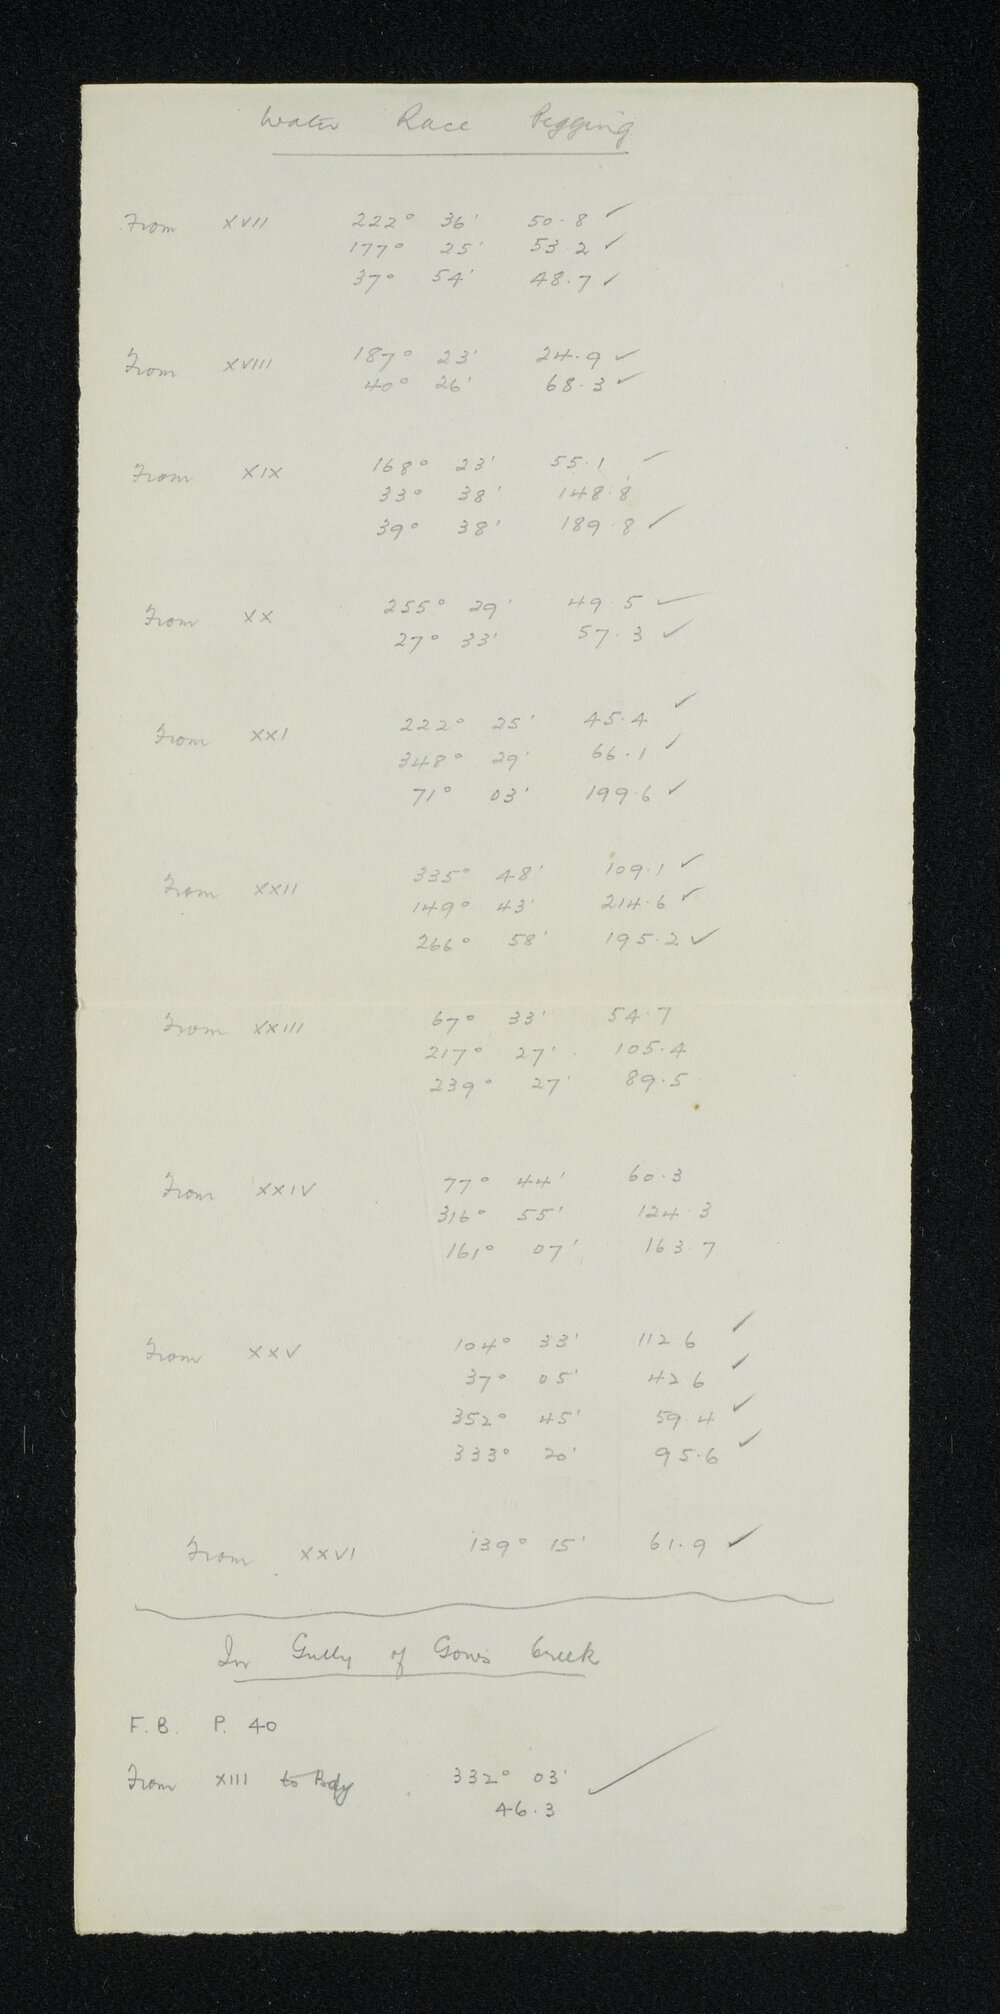 Water Race Pegging
From XVII 222° 36' 50.8 ✓
177° 25' 53.2 ✓
37° 54' 48.7 ✓
From XVIII 187° 23' 24.9 ✓
40° 26' 68.3 ✓
From XIX 168° 23' 55.1 ✓
33° 38' 148.8
39° 38' 189.8 ✓
From XX 255° 29' 49.5 ✓
27° 33' 57.3 ✓
From XXI 222° 25' 45.4 ✓
348° 29' 66.1 ✓
71° 03' 199.6 ✓
From XXII 335° 48' 109.1 ✓
149° 43' 214.6 ✓
266° 58' 195.2 ✓
From XXIII 67° 33' 54.7
217° 27' 105.4
239° 27' 89.5
From XXIV 77° 44' 60.3
316° 55' 124.3
161° 07' 163.7
From XXV 104° 33' 112.6 ✓
37° 05' 42.6 ✓
352° 45' 59.4 ✓
333° 20' 95.6 ✓
From XXVI 139° 15' 61.9 ✓
In Gully of Gows Creek
F.B. P. 40
From XIII to Bdy 332° 03' ✓
46.3